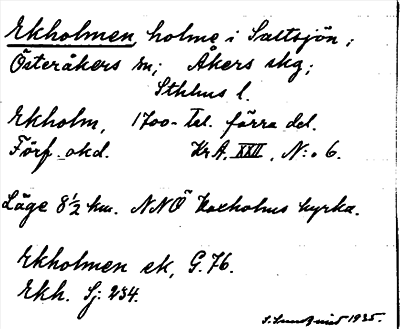 Ekholmen, holme i Saltsjön;
Österåkers sn; Åkers skg;
Sthlms l.
Ekholm, 1700-tal. förra del.
Förf. okd. Kr.A. XXII, N:o 6.
Läge 8 1/2 km. NNÖ Vaxholms kyrka.
Ekholmen ek, G. 76.
Ekh. Sj: 234.
S. Lundqvist 1935.